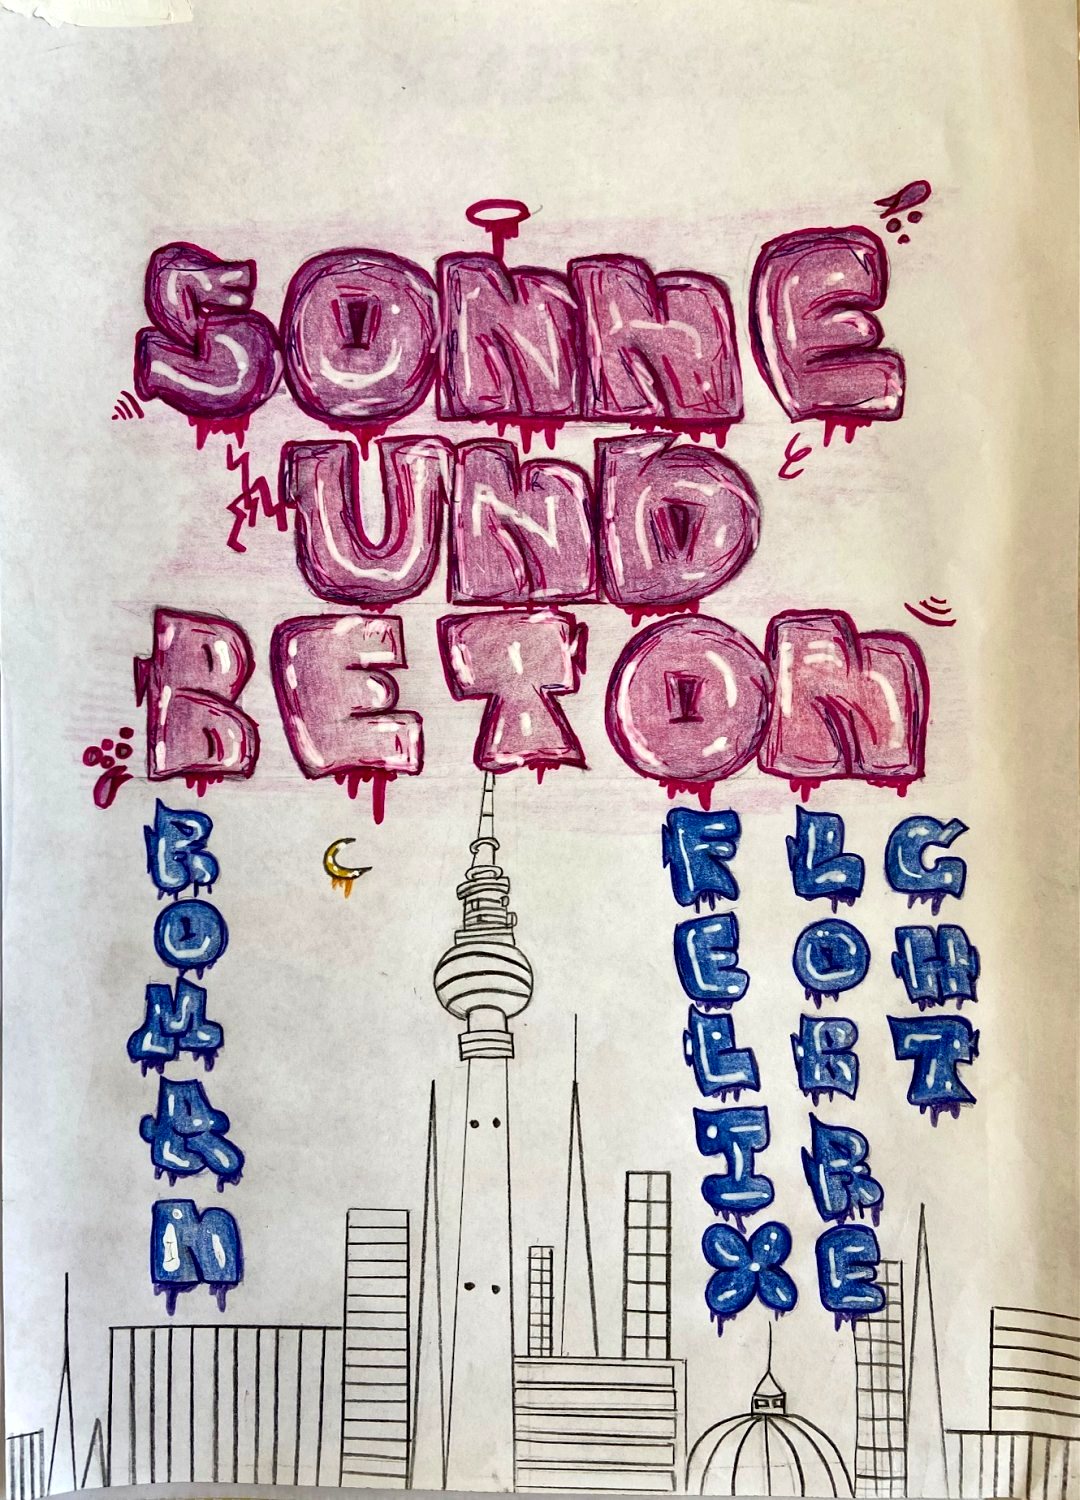 SONNE
UND
BETON
ROMAN
FELIX
LOBRE
CHT